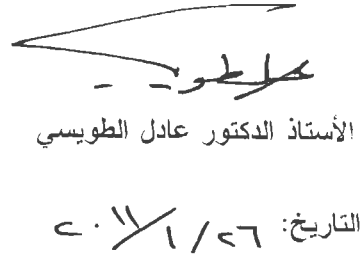 الأستاذ الدكتور عادل الطويسي
التاريخ: ٢٦/١/٢٠١١